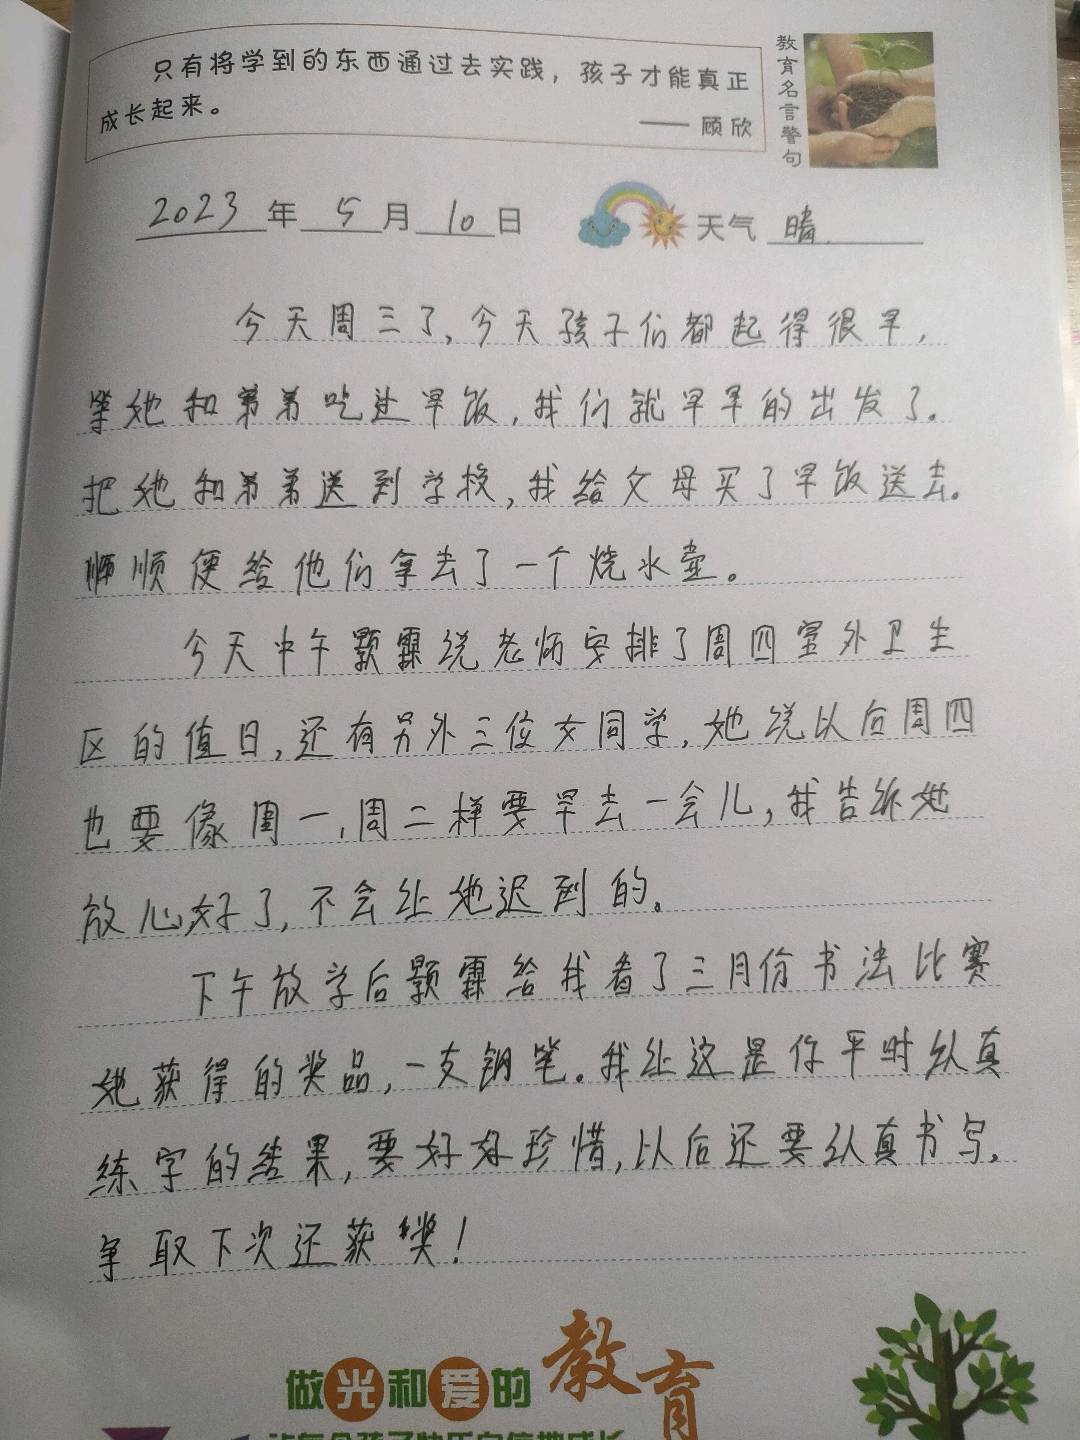 只有将学到的东西通过去实践，孩子才能真正
成长起来。
—— 顾欣
教育名言警句
2023年 5月 10日 天气 晴.
今天周三了,今天孩子们都起得很早,
等她和弟弟吃过早饭,我们就早早的出发了。
把她和弟弟送到学校,我给父母买了早饭送去。
顺便给他们拿去了一个烧水壶。
今天中午颢霖说老师安排了周四室外卫生
区的值日,还有另外三位女同学,她说以后周四
也要像周一,周二一样要早去一会儿,我告诉她
放心好了,不会让她迟到的。
下午放学后颢霖给我看了三月份书法比赛
她获得的奖品,一支钢笔。我让这是你平时认真
练字的结果,要好好珍惜,以后还要认真书写,
争取下次还获奖!
做光和爱的教育